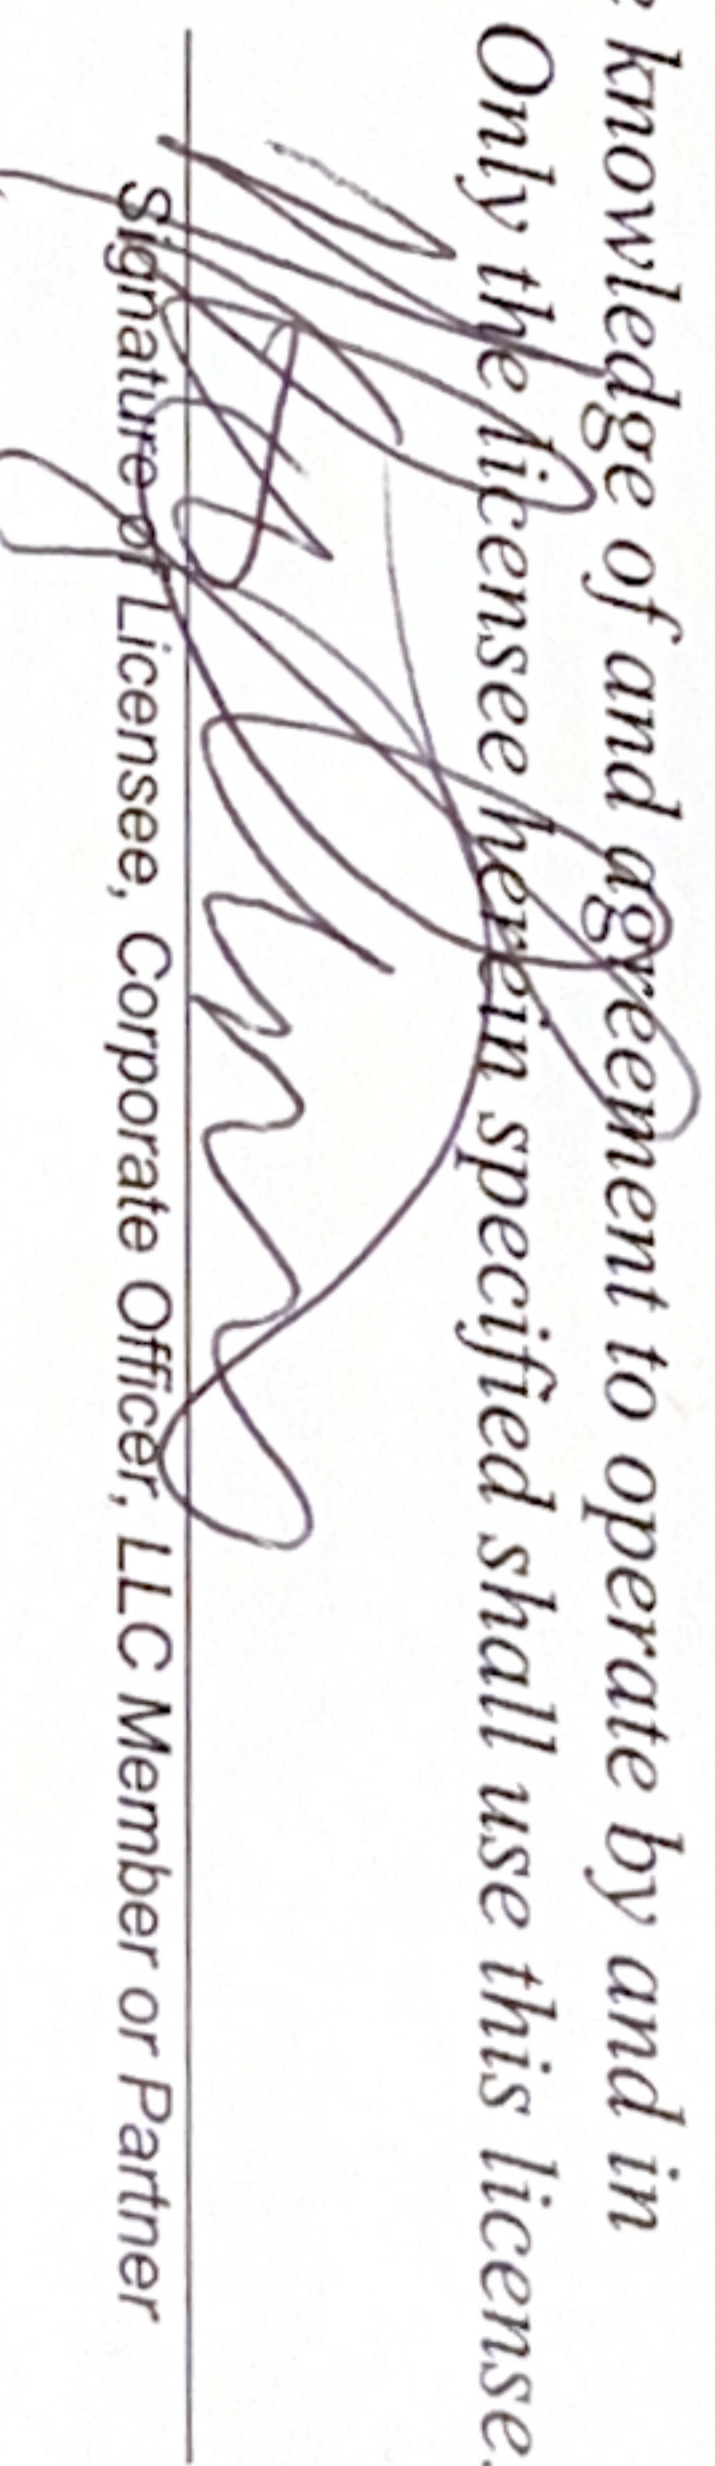 knowledge of and agreement to operate by and in
Only the licensee herein specified shall use this license.
Signature of Licensee, Corporate Officer, LLC Member or Partner